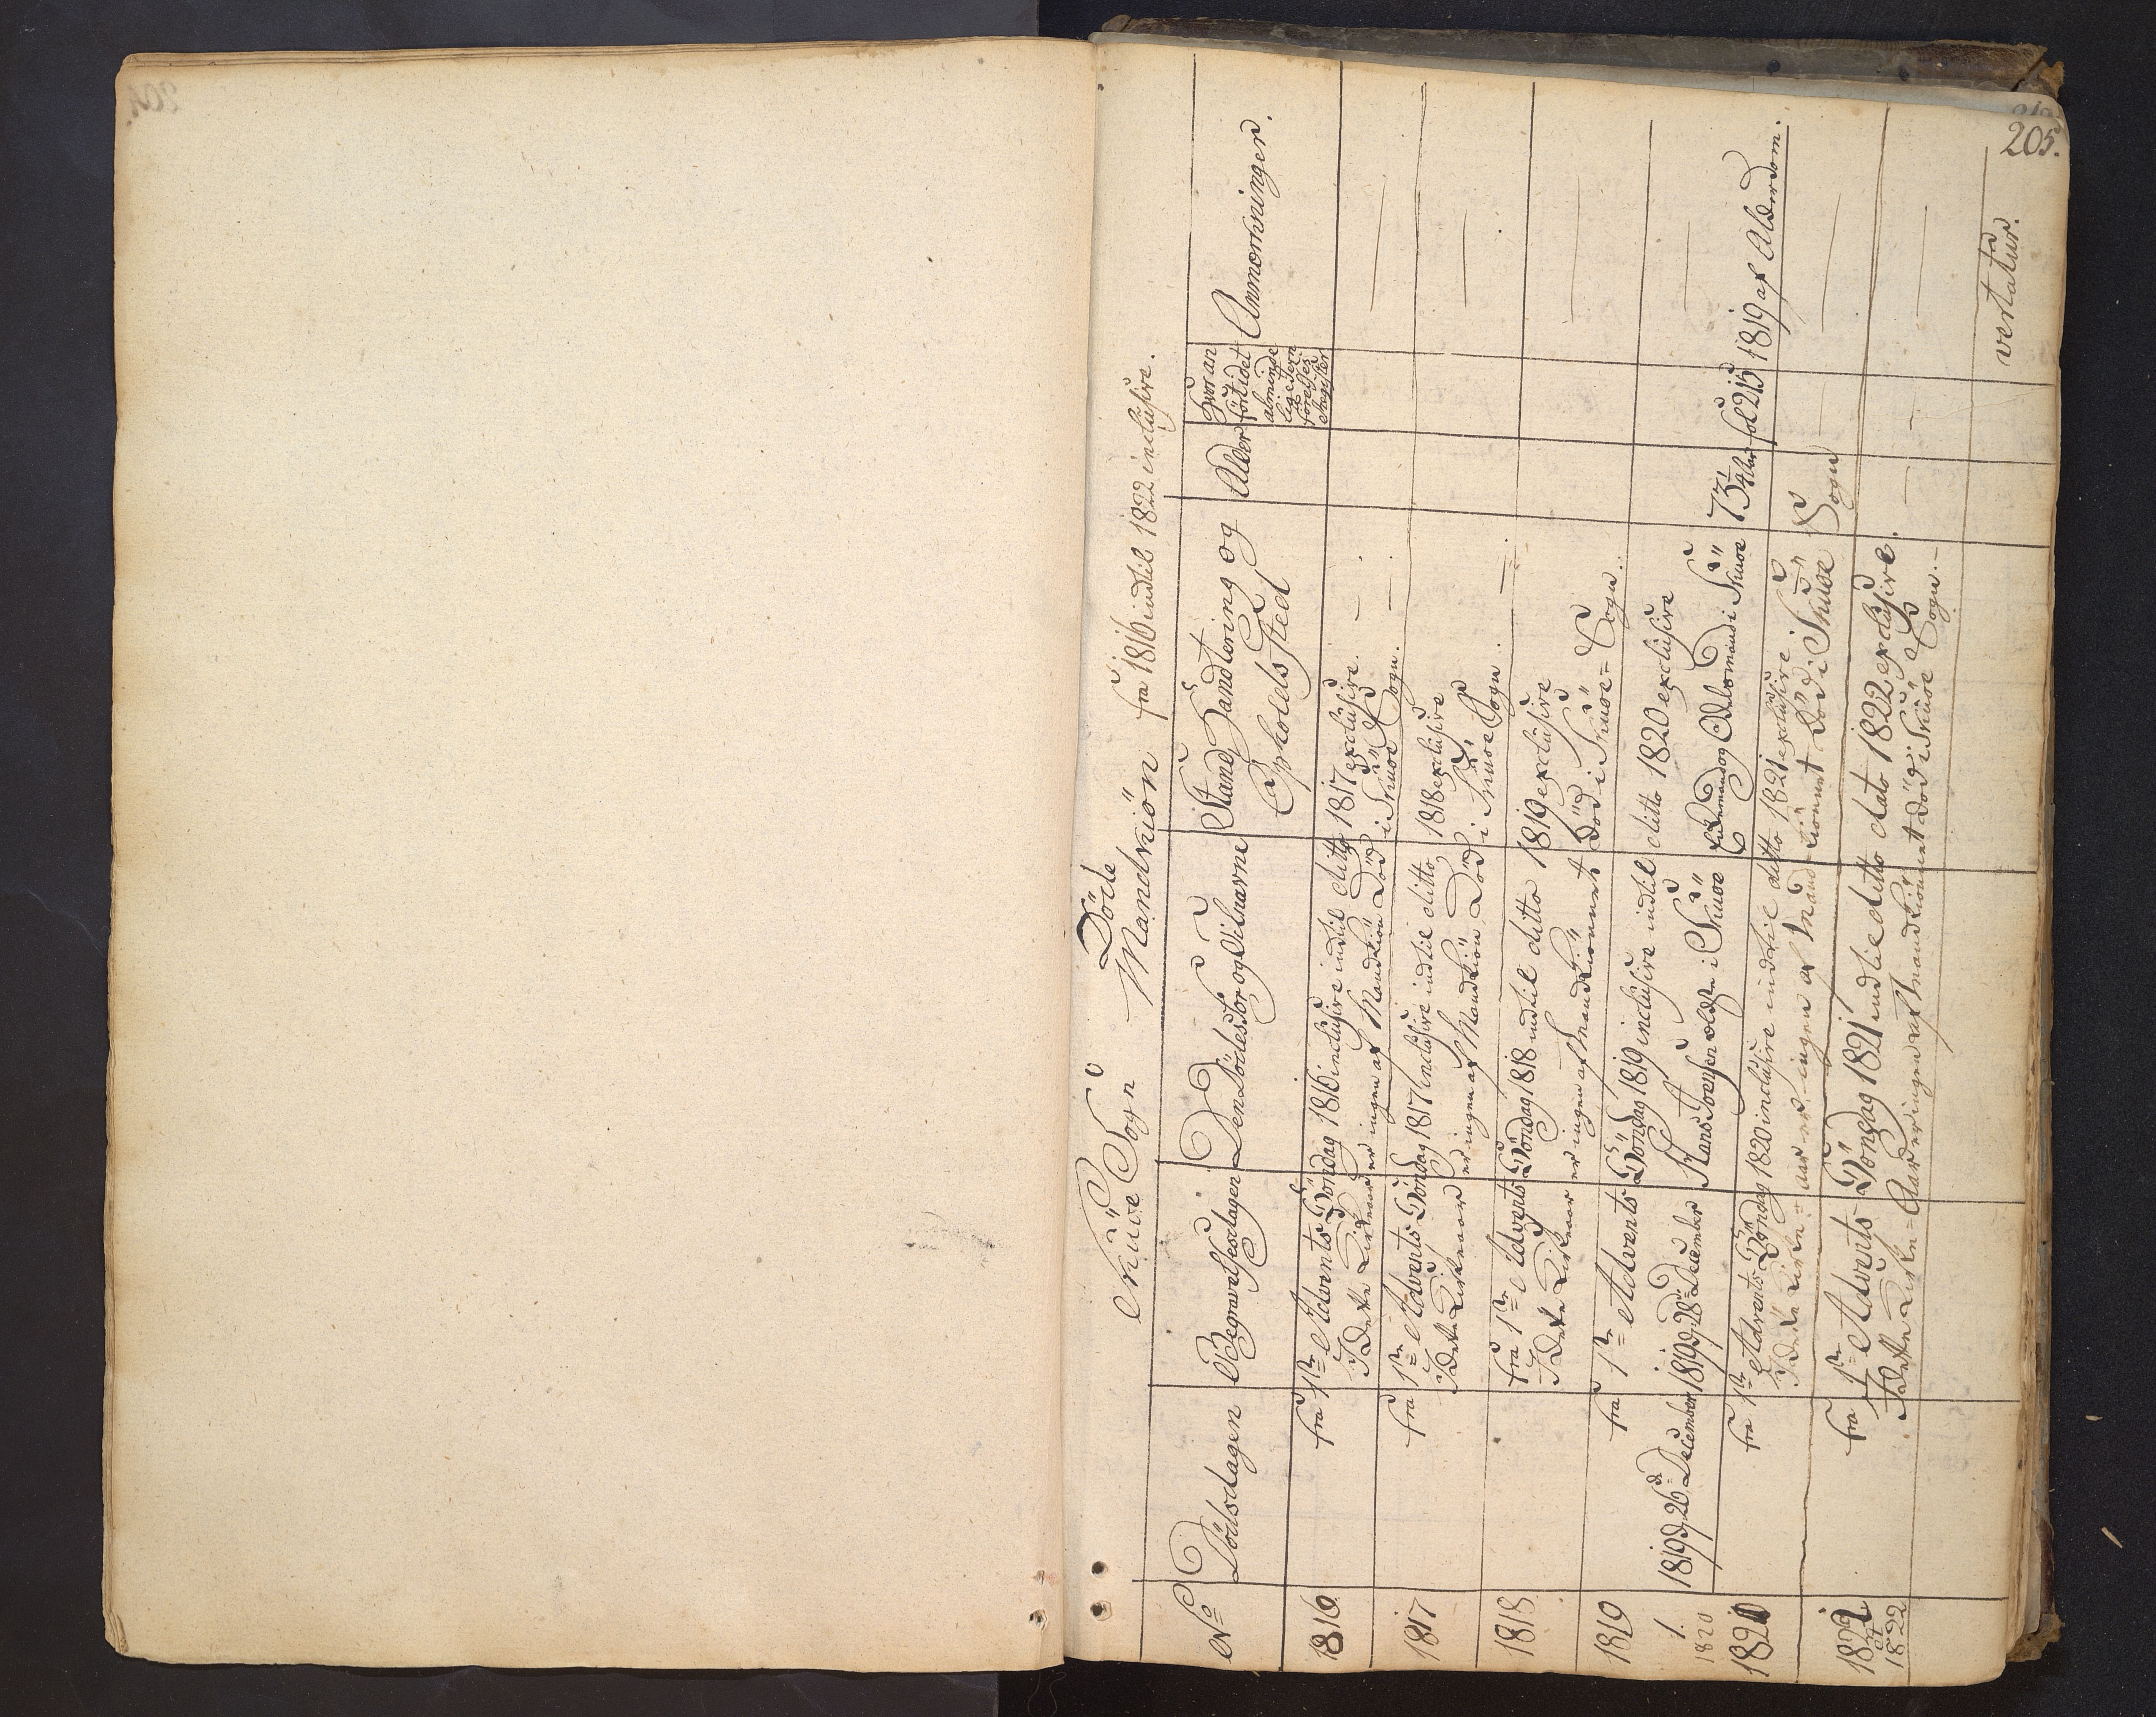 205.
Skúöe Sogn Döde Mandkiön fra 1816 indtil 1822 inclúsive.
No Dödsdagen Begravelsesdagen Den Dödes For og Tilnavne Stand, Handtering og Opholds sted Alder Hvor anført i det almindelige Jevnførelses Register Anmærkninger.
1816. fra 1ste Advents Söndag 1816 inclúsive indtil ditto 1817 exclúsive.
I Dette Kirkeaar er ingen af Mandkiön Död i Skúöe Sogn.
1817 fra 1ste Advents Söndag 1817 inclúsive indtil ditto 1818 exclúsive
I Dette Kirkeaar er ingen af Mandkiön Död i Skúöe Sogn.
1818. fra 1ste Advents Söndag 1818 indtil ditto 1819 exclúsive
I Dette Kirkeaar er ingen af Mandkiönnet Död i Skúöe Sogn.
1819 fra 1ste Advents Söndag 1819 inclúsive indtil ditto 1820 exclúsive
1. 1819 d. 26de December 1819 d. 28de December Hans Joensen ældste i Skúöe Huusmand og Odelsmand i Skúöe 73 1/4 Aar fol 215 1819 af Alderdom.
1820
1820 fra 1ste Advents Söndag 1820 inclúsive indtil ditto 1821 exclúsive.
I dette Kirke-aar er ingen af Mandkiönnet Död i Skúöe Sogn
1821 fra 1ste Advents Söndag 1821 indtil ditto dato 1822 exclúsive.
et
1822 I dette Kirke-Aar er ingen af Mandkiönnet död i Skúöe Sogn.
vertatúr.